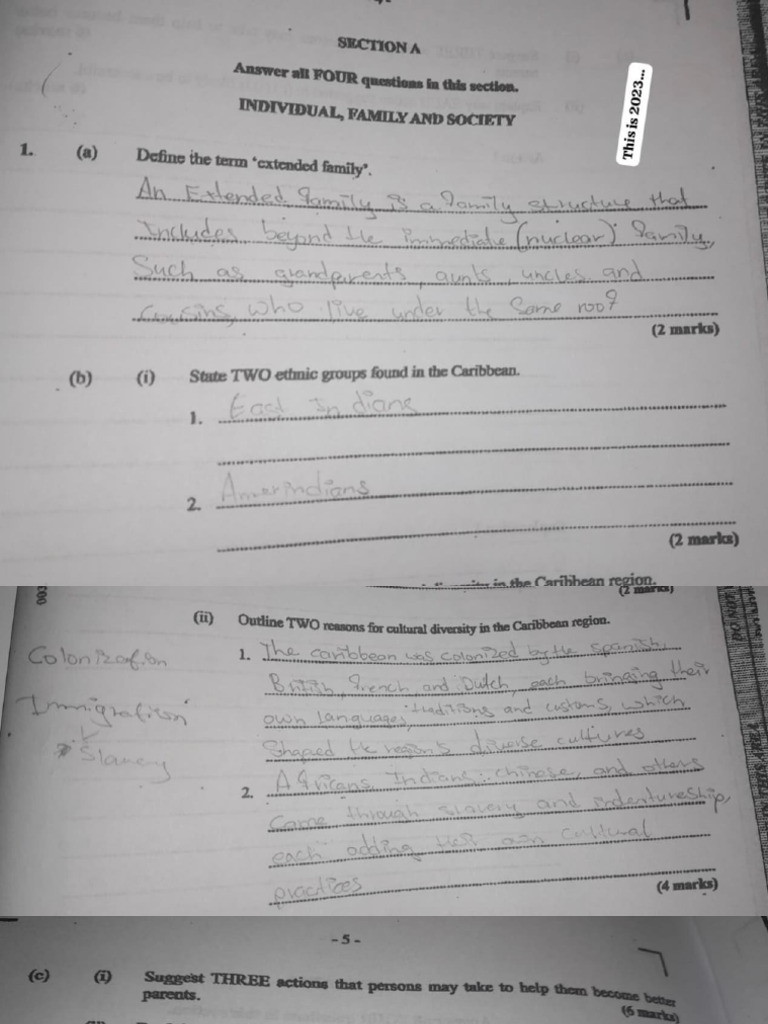 SECTION A
Answer all FOUR questions in this section.
INDIVIDUAL, FAMILY AND SOCIETY
This is 2023...
1. (a) Define the term 'extended family'.
An Extended family is a family structure that
Includes beyond the immediate (nuclear) family,
Such as grandparents, aunts, uncles and
Cousins, who live under the Same roof
(2 marks)
(b) (i) State TWO ethnic groups found in the Caribbean.
1. East Indians
2. Amerindians
(2 marks)
in the Caribbean region.
(2 marks)
(ii) Outline TWO reasons for cultural diversity in the Caribbean region.
Colonization
Immigration
Slavery
1. The caribbean was colonized by the Spanish,
British, French and Dutch, each bringing their
own languages, traditions and customs, which
Shaped the region's diverse cultures
2. Africans, Indians, chinese, and others
Came through slavery and indentureship,
each adding their own cultural
practices
(4 marks)
- 5 -
(c) (i) Suggest THREE actions that persons may take to help them become better
parents.
(6 marks)